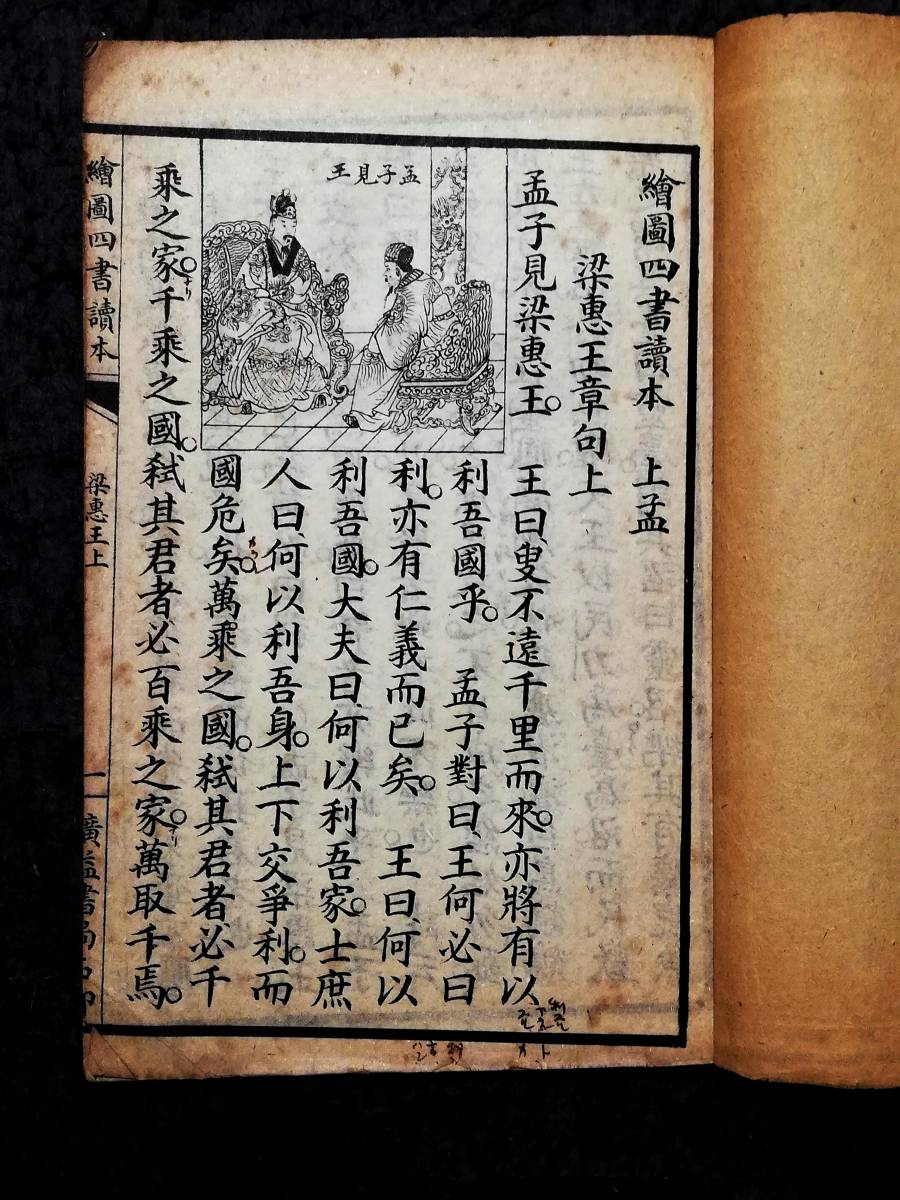 繪圖四書讀本 上孟
梁惠王章句上
孟子見梁惠王。 王曰、叟不遠千里而來。亦將有以
孟子見王
利吾國乎。 孟子對曰、王何必曰
利。亦有仁義而已矣。 王曰、何以
利吾國。大夫曰、何以利吾家。士庶
人曰、何以利吾身。上下交爭利。而
國危矣。萬乘之國。弒其君者、必千
乘之家。千乘之國。弒其君者必百乘之家。萬取千焉。
繪圖四書讀本
梁惠王上
一
廣益書局石印